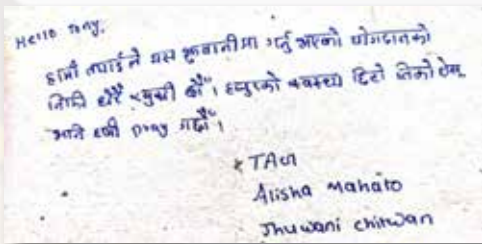 Hello Tony,
हामी तपाईले यस झुवानीमा गर्नु भएको योगदानको
लागि धेरै खुसी छौँ। हजुरको स्वास्थ्य छिटो निको होस्
भनि हामी pray गर्छौँ।
TAG
Alisha Mahato
Jhuwani chitwan